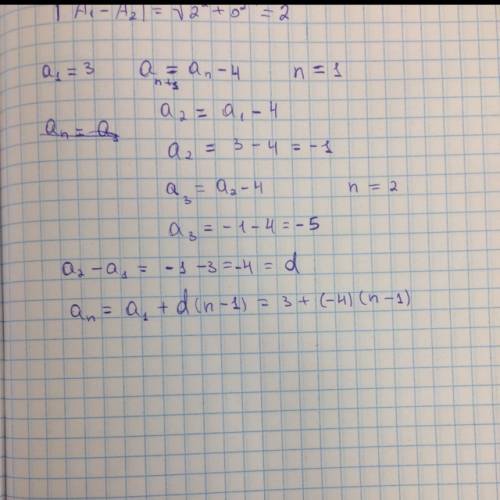 |A₁ - A₂| = √2² + 0² = 2
a₁ = 3 aₙ₊₁ = aₙ - 4 n = 1
a₂ = a₁ - 4
aₙ = a₁
a₂ = 3 - 4 = -1
a₃ = a₂ - 4 n = 2
a₃ = -1 - 4 = -5
a₂ - a₁ = -1 - 3 = -4 = d
aₙ = a₁ + d(n-1) = 3 + (-4)(n-1)